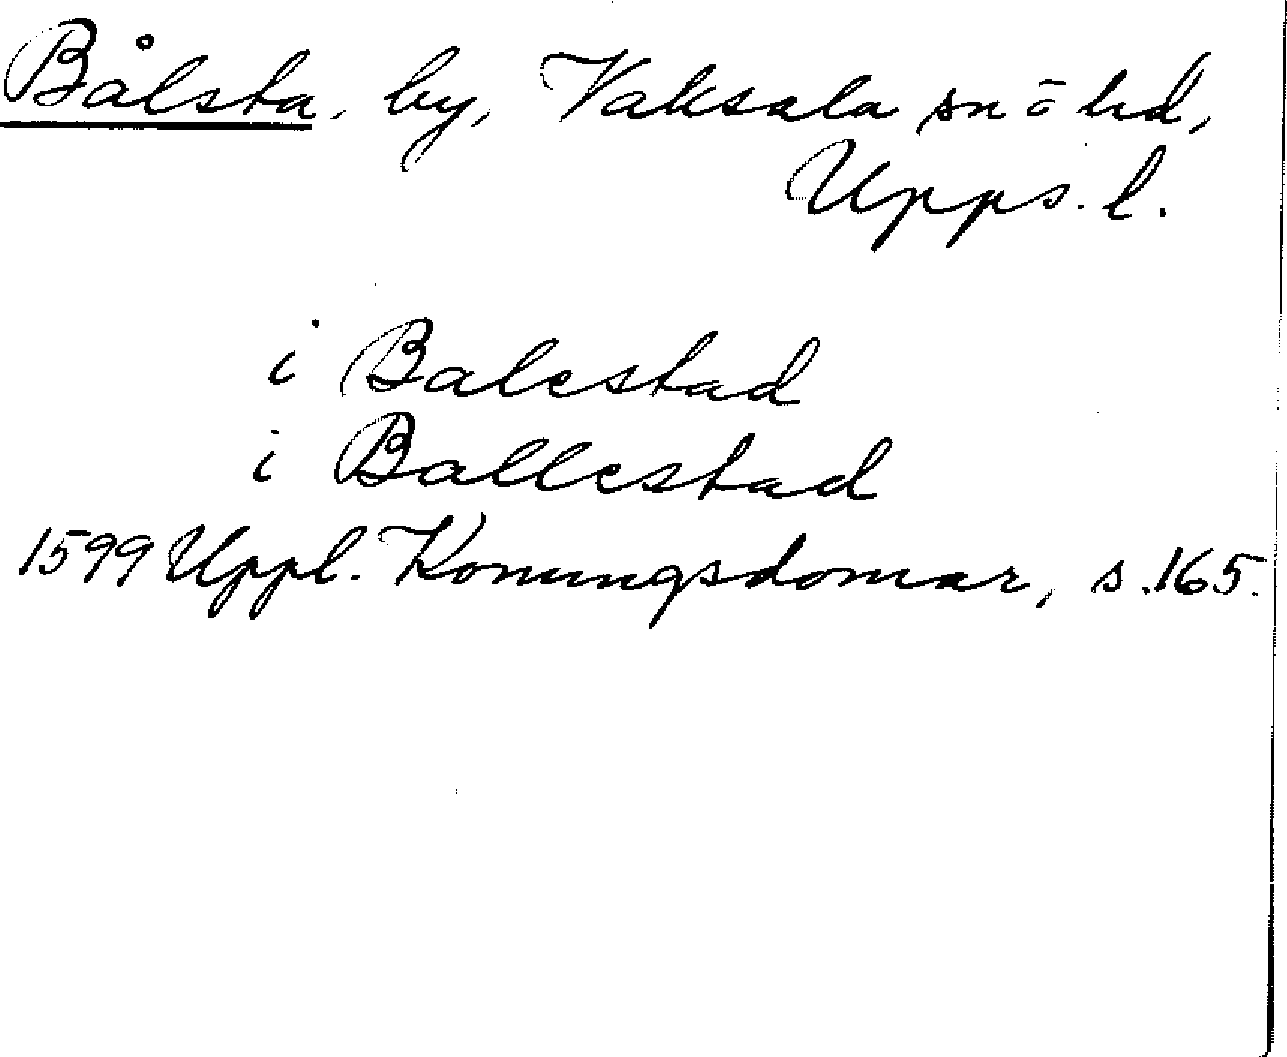 Bålsta, by, Vaksala sn ō hd,
Upps. l.
i Balestad
i Ballestad
1599 Uppl. Konungsdomar, s. 165.